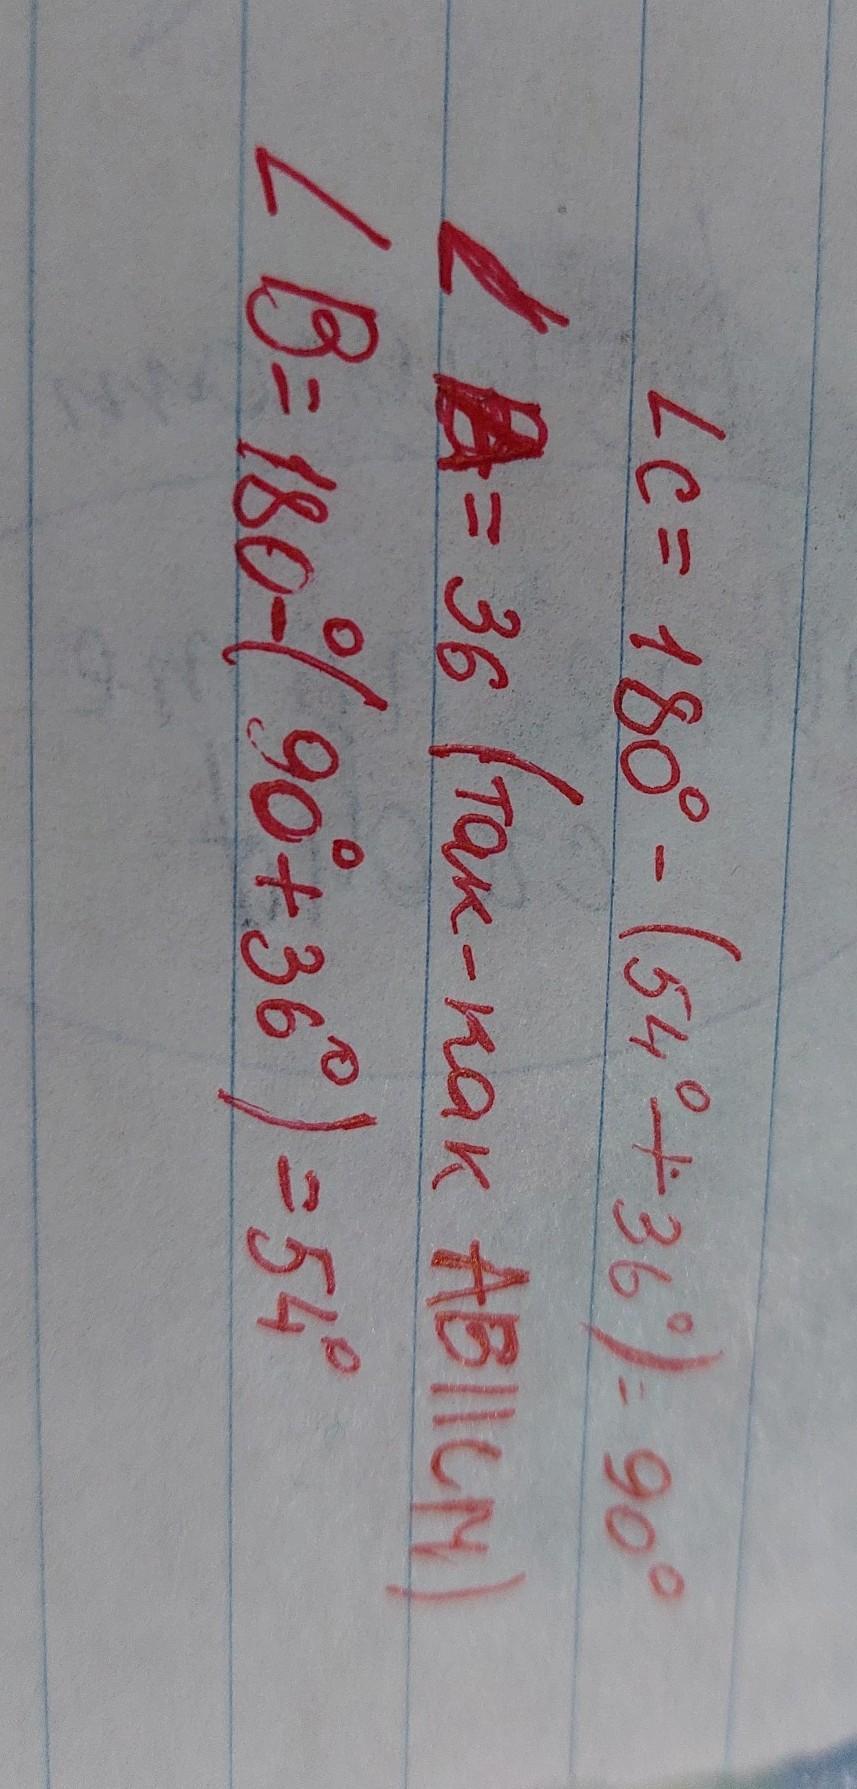 ∠C = 180° - (54° + 36°) = 90°
∠A = 36 (так-как AB||CM)
∠B = 180° - (90° + 36°) = 54°